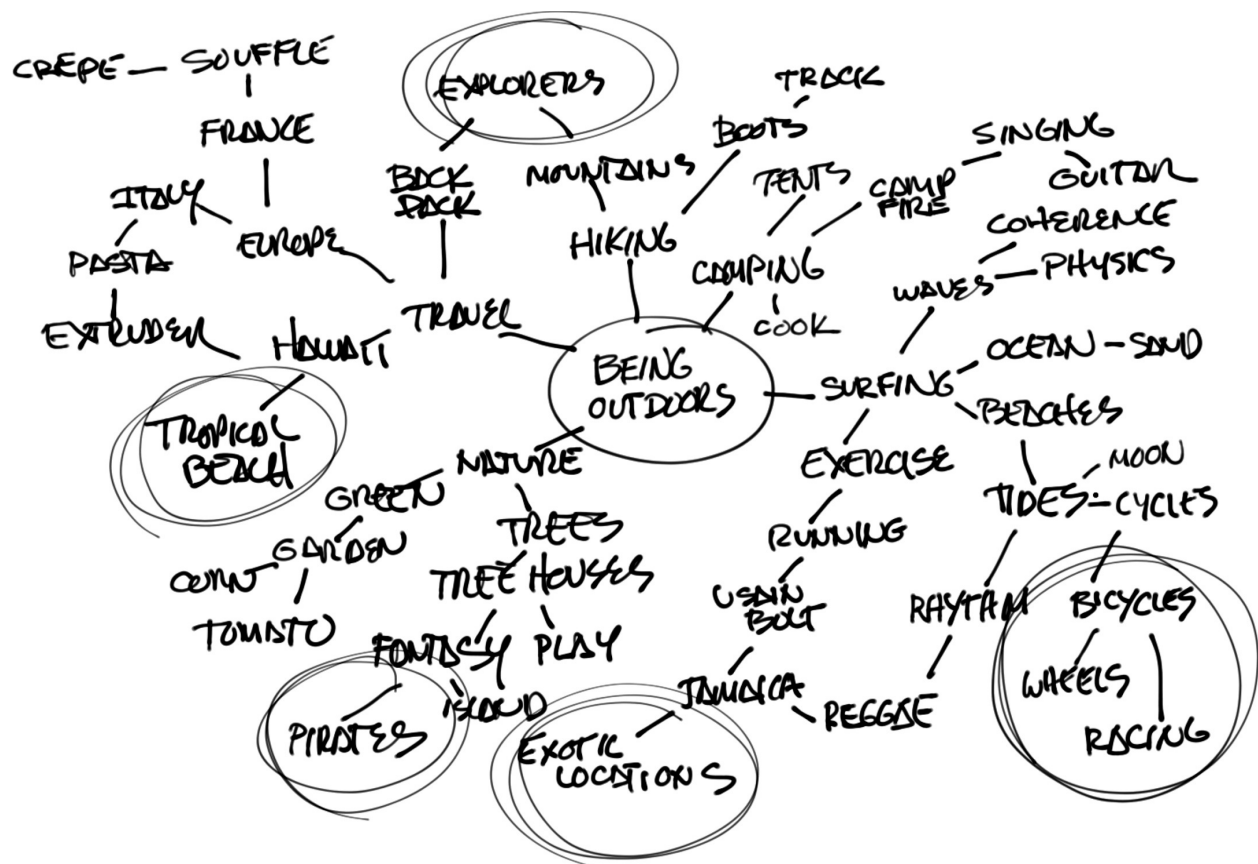 CREPE
SOUFFLE
FRANCE
ITALY
PASTA
EUROPE
EXTRUDER
HAWAII
TROPICAL
BEACH
EXPLORERS
BACK
PACK
MOUNTAINS
TRAVEL
HIKING
BOOTS
TRACK
TENTS
CAMPING
COOK
CAMP
FIRE
SINGING
GUITAR
BEING
OUTDOORS
COHERENCE
WAVES
PHYSICS
SURFING
OCEAN – SAND
BEACHES
MOON
TIDES
CYCLES
EXERCISE
RUNNING
USAIN
BOLT
RHYTHM
BICYCLES
WHEELS
RACING
JAMAICA
REGGAE
EXOTIC
LOCATIONS
NATURE
GREEN
GARDEN
CORN
TOMATO
TREES
TREE HOUSES
FONTASY
PLAY
ISLAND
PIRATES